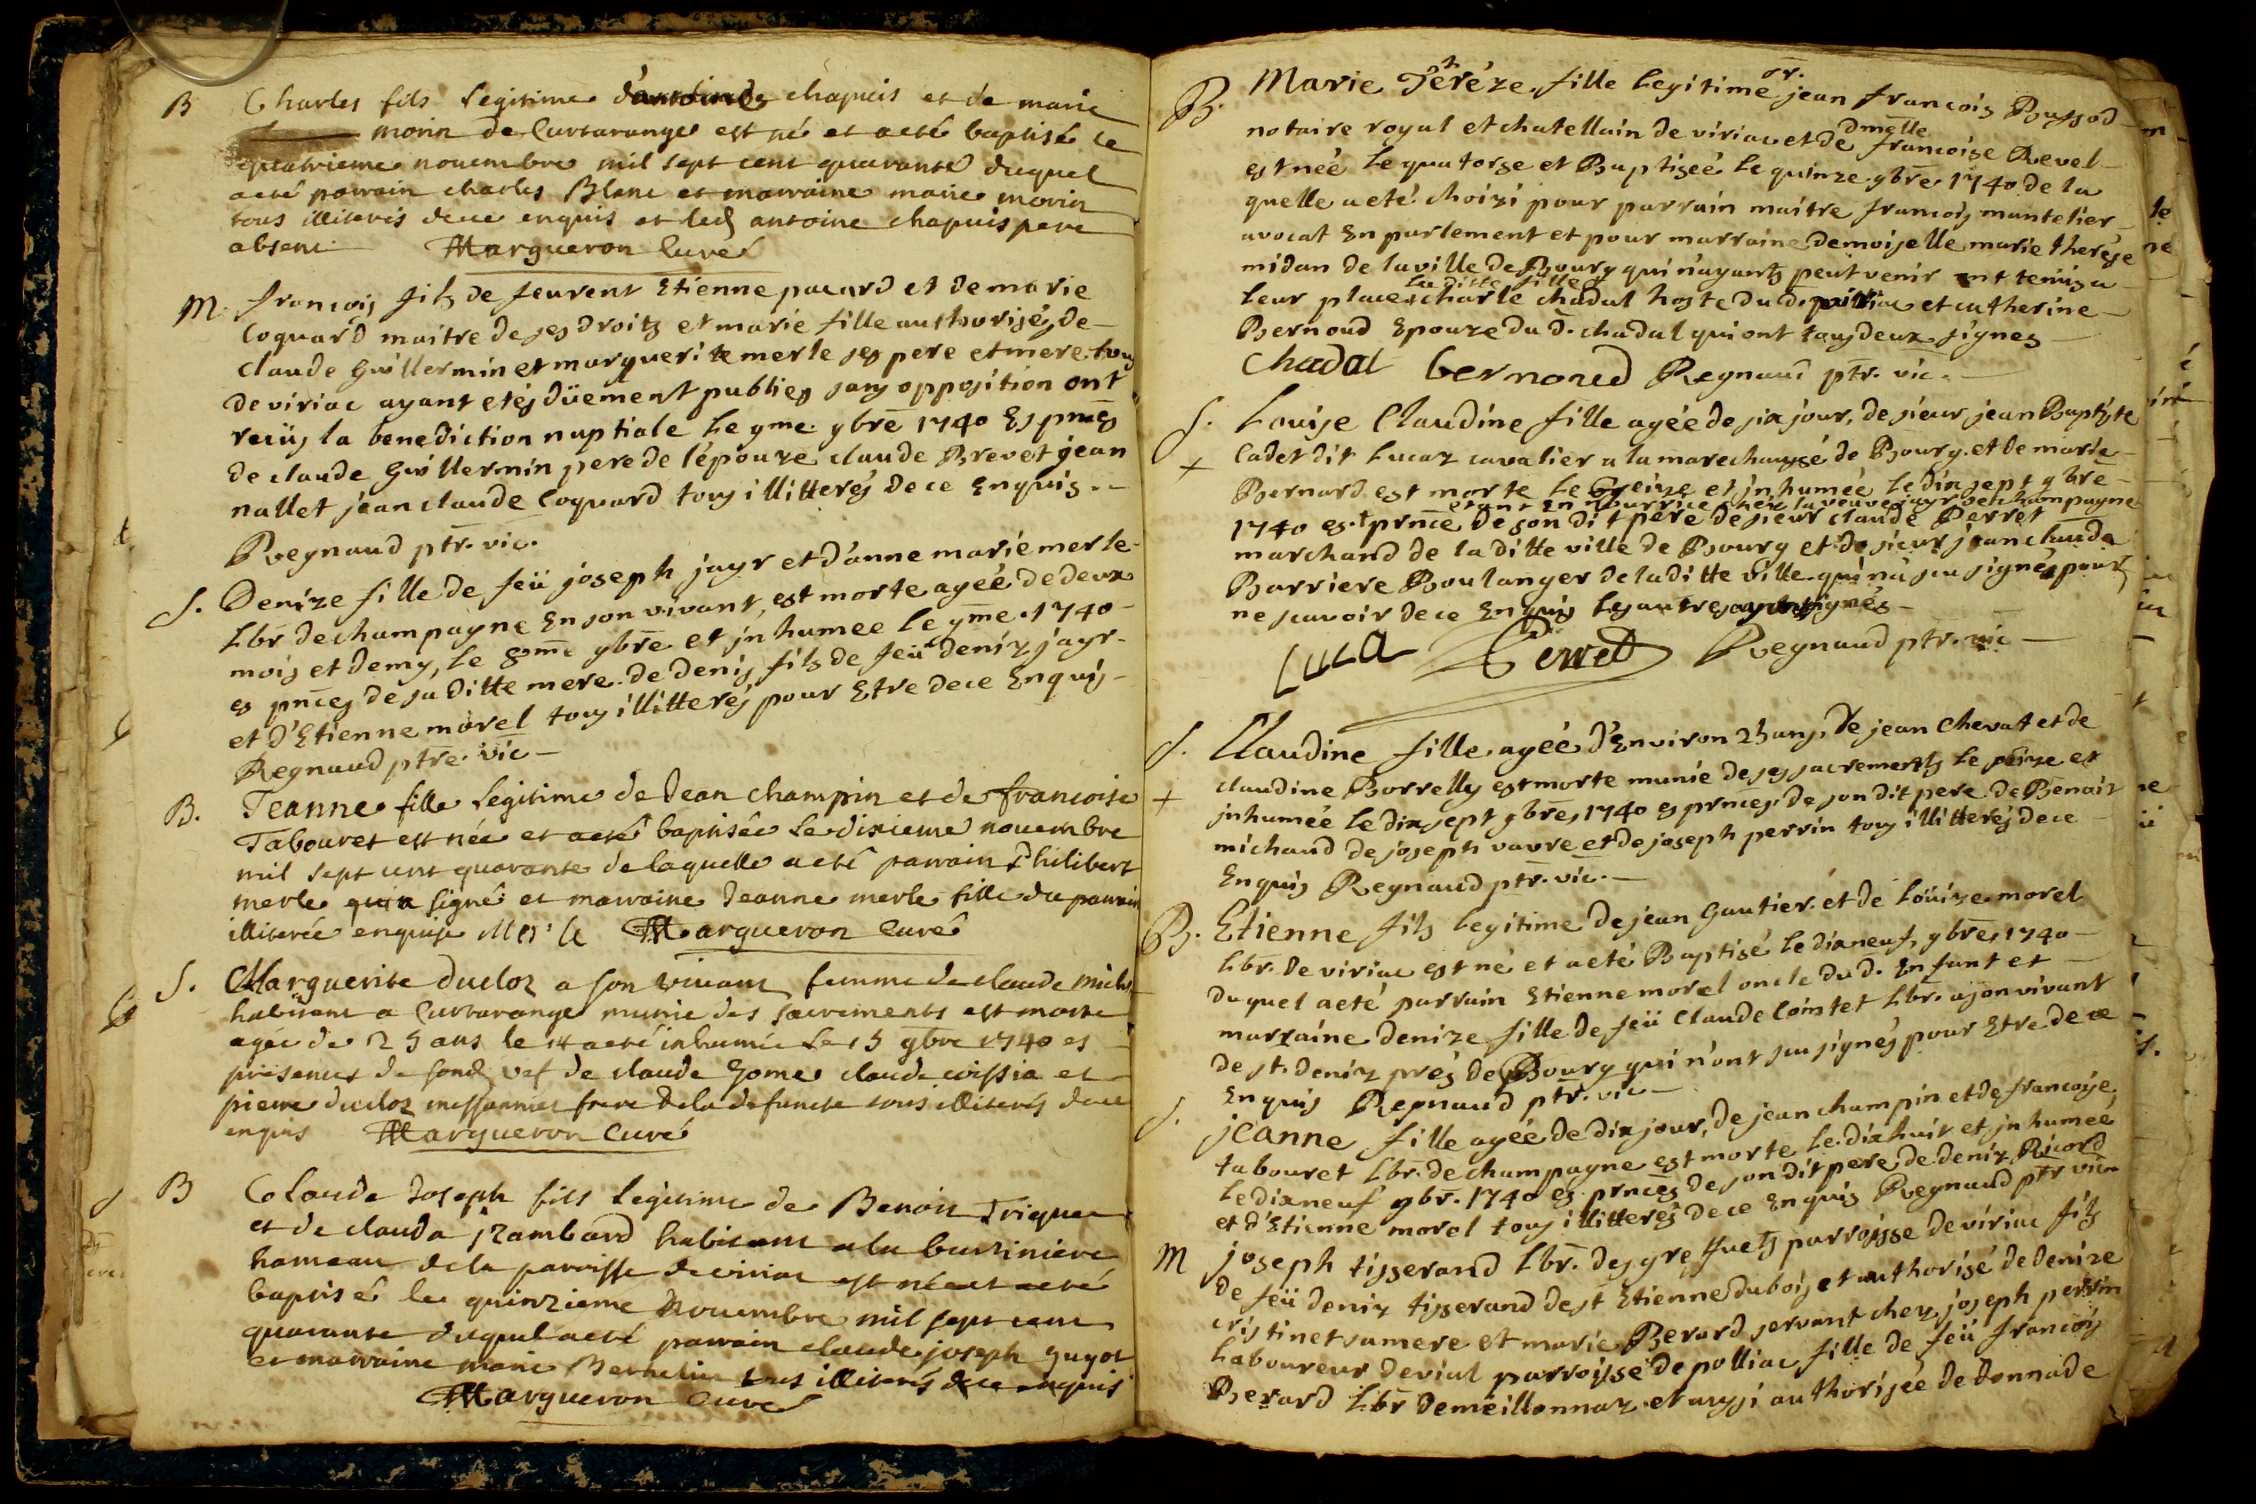 B Charles fils legitime d'antoine chapuis et de marie
morin de Curtaranges est né et aeté baptisé le
quatrieme nouembre mil sept cent quarante duquel
aeté parrain charles Blanc et marraine marie morin
tous illiterés dece enquis et led antoine chapuis pere
absent Margueron Curé
M. françois filz de feu rent Etienne pacard et de marie
Coquard maitre de ses droitz et marie fille authorisés de
claude Guillermin et marguerite merle ses pere et mere tous
de viriac ayant etés düement publies sans opposition ont
reciis la benediction nuptiale le 9me 9bre 1740 Es pnces
de claude Guillermin pere de l'épouze claude Brevet jean
nallet jean claude Coquard tous illitterés dece Enquis
Regnaud ptr. vic.
S. Denize fille de feü joseph jayr et d'anne marie merle
Lbr de champagne En son vivant, est morte agée de deux
mois et demy, le 8me 9bre et jnhumee le 9me. 1740
es pnces de sa ditte mere de denis filz de feü deniz jayr
et d'Etienne morel tous illitterés pour Etre dece Enquis
Regnaud ptre. vic
B. Jeanne fille legitime de Jean champin et de francoise
Tabouret est née et aeté baptisée le dixieme nouembre
mil sept cent quarante de laquelle aeté parrain Philibert
merle qui a signé et marraine Jeanne merle fille du parrain
illiterée enquise Merle Margueron Curé
S. Marguerite ducloz a son viuant femme de claude
habitant a Curtaranges munie des sacrements est morte
agée de 25 ans le 14 aeté inhumée le 15 9bre 1740 es
présences de sond de claude claude et
pierre ducloz frere dela defuncte tous illiterés dece
enquis Margueron Curé
B Claude Joseph fils legitime de Benoit Triquet
et de clauda Rambard habitant a la
hameau dela paroisse de viriac est né et aeté
baptisé le quinzieme nouembre mil sept cent
quarante duquel aeté parrain claude joseph guyot
et marraine marie tous illiterés dece enquis
Margueron Curé
B. Marie Teréze fille legitime jean françois
notaire royal et chatellain de viriac et de dmelle francoise Revel
est née le quatorse et Baptisée le quinze 9bre 1740 de la
quelle aeté choizi pour parrain maitre françois mantelier
avocat En parlement et pour marraine demoiselle marie therése
midan de la ville de Bourg qui n'ayantz peut venir ont tenu a
leur place laditte fille charle chadal hoste du d. et catherine
Bernoud Epouze du d. chadal qui ont tous deux signes
chadal bernoud Regnaud ptr. vic.
S. Louise Claudine fille agée de six jour, de sieur jean Baptiste
+ Cadet dit Lucaz cavalier a la marechaussé de Bourg et de marie
Bernard est morte le et jnhumée le dix sept 9bre
etant En nourrice chez la veuve jayr de champagne
1740 es prnce de son dit pere de sieur claude Perret
marchand de la ditte ville de Bourg et de sieur jean claude
Barriere Boulanger de la ditte ville qui n'a scu signés pour
ne scavoir dece Enquis les autres ayant signés
Luca Perret Regnaud ptr. vic
S. Claudine fille agée d'Environ 23 ans, de jean Chevat et de
+ claudine Borrelly est morte munie de ses sacrementz le et
jnhumée le dix sept 9bre, 1740 es prnces de son dit pere de Benoit
michaud de joseph vavre et de joseph perrin tous illitterés dece
Enquis Regnaud ptr. vic.
B. Etienne filz legitime de jean Gautier et de Loüize morel
Lbr. de viriac est né et aeté Baptisé le dixneuf, 9bre, 1740
duquel aeté parrain Etienne morel oncle du d. Enfant et
marraine denize fille de feü Claude Cointet Lbr. a son vivant
de st. deniz prés de Bourg qui n'ont scu signés pour Etre de ce
Enquis Regnaud ptr. vic
S. jeanne fille agée de dix jour, de jean champin et de francoise
tabouret Lbr. de champagne est morte le dixhuit et jnhumeé
le dixneuf 9br. 1740 es. prnces de son dit pere de deniz Ricord
et d'Etienne morel tous illitterés dece Enquis Regnaud ptr vic
M joseph tisserand Lbr. des parroisse de viriac filz
de feü deniz tisserand de st Etienne dubois et authorisé de denize
cristinet sa mere et marie Berard servant chez joseph perrin
Laboureur de vial parroisse de polliac fille de feü françois
Berard Lbr de meillonnaz et aussi authorisée de donnade